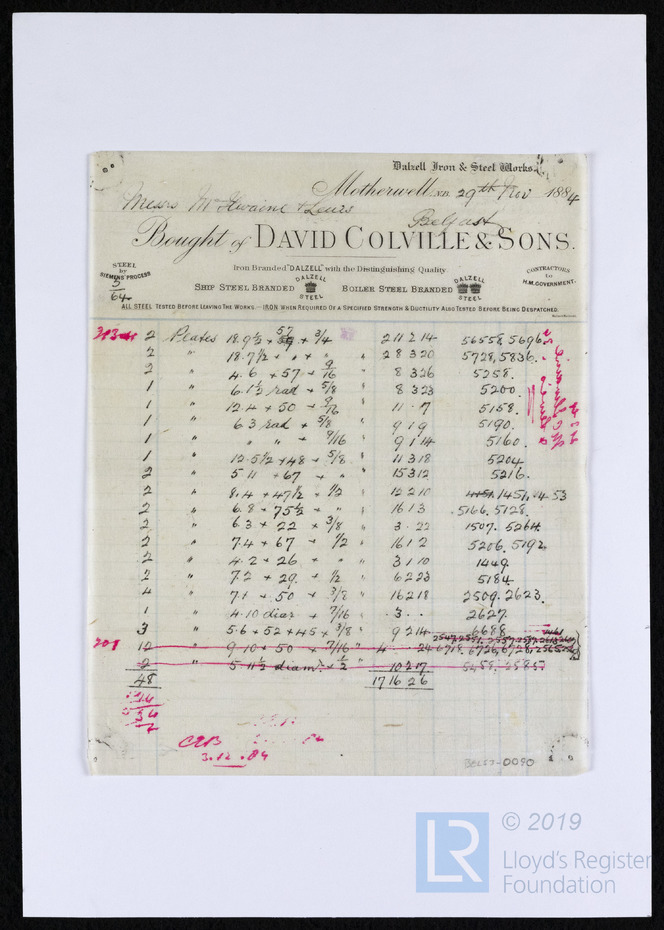 Dalzell Iron & Steel Works.
Motherwell N.B. 29th Nov 1884
Messrs McIlwaine & Lewis
Belfast
Bought of DAVID COLVILLE & SONS.
Iron Branded "DALZELL" with the Distinguishing Quality
STEEL by SIEMENS PROCESS
SHIP STEEL BRANDED DALZELL STEEL BOILER STEEL BRANDED DALZELL STEEL
CONTRACTORS to H.M. GOVERNMENT.
5/64
ALL STEEL TESTED BEFORE LEAVING THE WORKS.—IRON WHEN REQUIRED OF A SPECIFIED STRENGTH & DUCTILITY ALSO TESTED BEFORE BEING DESPATCHED.
2 Plates 18.9½ + 57 + 3/4 " 2 11 2 14 56558, 5696
2 " 18.7½ + " + " " 2 8 3 20 5728, 5836.
2 " 4.6 + 57 + 9/16 " 8 3 26 5258.
1 " 6.1½ rad + 5/8 " 8 3 23 5200.
1 " 12.4 + 50 + 9/16 11 . 7 5158.
1 " 6 3 rad + 5/8 " 9 1 9 5190.
1 " " " + 9/16 " 9 1 14 5160.
1 " 12.5½ + 48 + 5/8 " 11 3 18 5204
2 " 5 11 + 67 + " " 15 3 12 5216.
2 " 8.4 + 47½ + ½ " 12 2 10 1451. 453
2 " 6.8 + 75½ + " " 16 1 3 5166. 5128.
2 " 6 3 + 22 + 3/8 " 3 . 22 1507. 5264.
2 " 7.4 + 67 + ½ " 16 1 2 5206. 5192
2 " 4.2 + 26 + " " 3 1 10 1449.
2 " 7.2 + 29. + ½ " 6 2 23 5184.
4 " 7.1 + 50 + 3/8 " 16 2 18 2509. 2623.
1 " 4.10 diar + 7/16 " . 3 . . 2627.
3 " 5.6 + 52 + 45 + 3/8 " 9 2 14 6688
201 12 " 9 10 + 50 + 7/16 " 4 . 24 6718. 6726, 6728,
2 " 5 11½ diam. + ½ " 10 2 17
48 17 16 2 6
3.12.84
BEL57-0090
LR © 2019
Lloyd's Register
Foundation